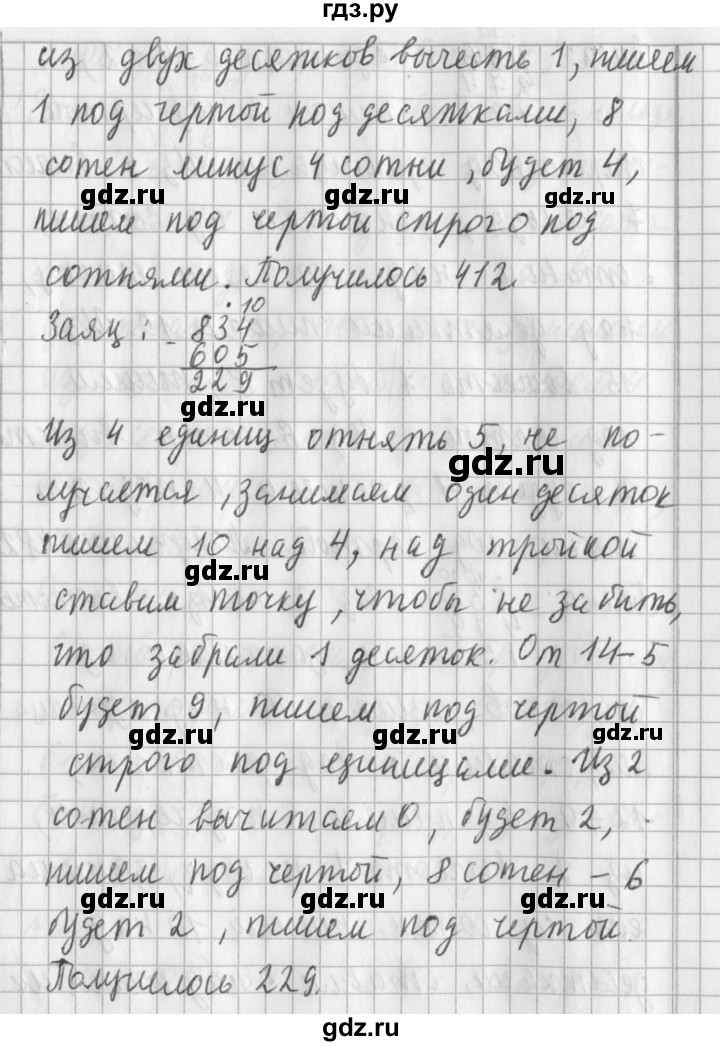 гдз.ру
из двух десятков вычесть 1, пишем
1 под чертой под десятками, 8
сотен минус 4 сотни, будет 4,
gdz.ru gdz.ru
пишем под чертой строго под
сотнями. Получилось 412.
gdz.ru
. 10
Заяц: - 834
605
229
gdz.ru
Из 4 единиц отнять 5, не по-
gdz.ru
лучается, занимаем один десяток
пишем 10 над 4, над тройкой
gdz.ru
ставим точку, чтобы не забыть,
что забрали 1 десяток. От 14-5
будет 9, пишем под чертой
gdz.ru gdz.ru gdz.ru
строго под единицами. Из 2
сотен вычитаем 0, будет 2,
пишем под чертой, 8 сотен - 6
gdz.ru gdz.ru
будет 2, пишем под чертой.
Получилось 229.
gdz.ru
gdz.ru